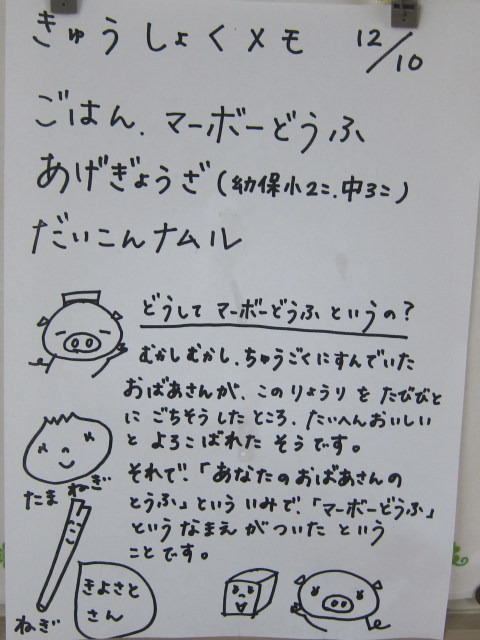 きゅうしょくメモ 12/10
ごはん、マーボーどうふ
あげぎょうざ(幼保小2コ、中3コ)
だいこんナムル
どうして マーボーどうふ というの?
むかしむかし、ちゅうごくにすんでいた
おばあさんが、このりょうり を たびびと
に ごちそうしたところ、たいへんおいしい
と よろこばれた そうです。
それで、「あなたのおばあさんの
とうふ」という いみで、「マーボーどうふ」
というなまえ がついた という
ことです。
たまねぎ
ねぎ
きよさと
さん